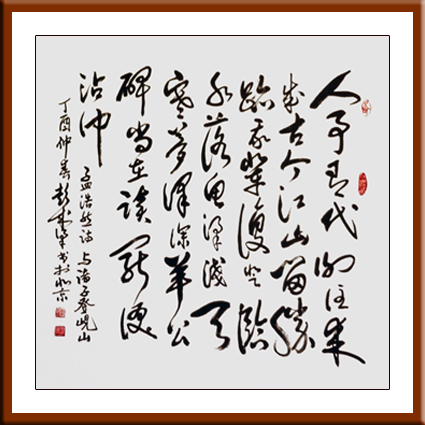 人事有代谢往来
成古今江山留勝
跡我辈復登臨
水落鱼梁浅天
寒梦泽深羊公
碑尚在读罷泪
沾巾
孟浩然诗 与诸子登岘山
丁酉仲春彭书於北京